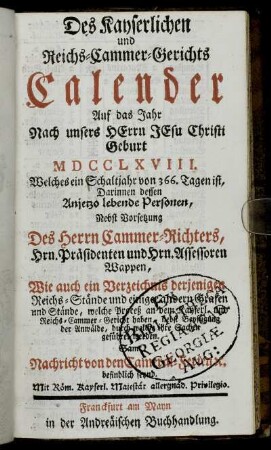 Des Kayserlichen
und
Reichs-Cammer-Gerichts
Calender
Auf das Jahr
Nach unsers HErrn JEsu Christi
Geburt
MDCCLXVIII.
Welches ein Schaltjahr von 366. Tagen ist,
Darinnen dessen
Anjetzo lebende Personen,
Nebst Vorsetzung
Des Herrn Cammer-Richters,
Hrn. Präsidenten und Hrn. Assessoren
Wappen,
Wie auch ein Verzeichnis derjenigen
Reichs-Stände und einige andern Grafen
und Stände, welche Process an dem Kayserl. und
Reichs-Cammer-Gericht haben, nebst
der Anwälde, durch welche ihre Sachen
geführet werden
Samt
Nachricht von den Cammer-
befindlich seynd.
Mit Röm. Kayserl. Majestät allergnäd. Privilegio.
Franckfurt am Mayn
in der Andreäischen Buchhandlung.
REGIAE
GEORGIAE
AUG.